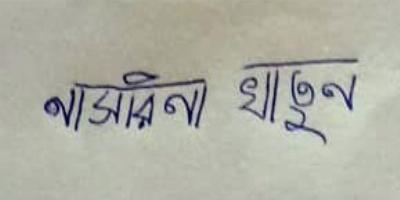 নাসরিনা খাতুন